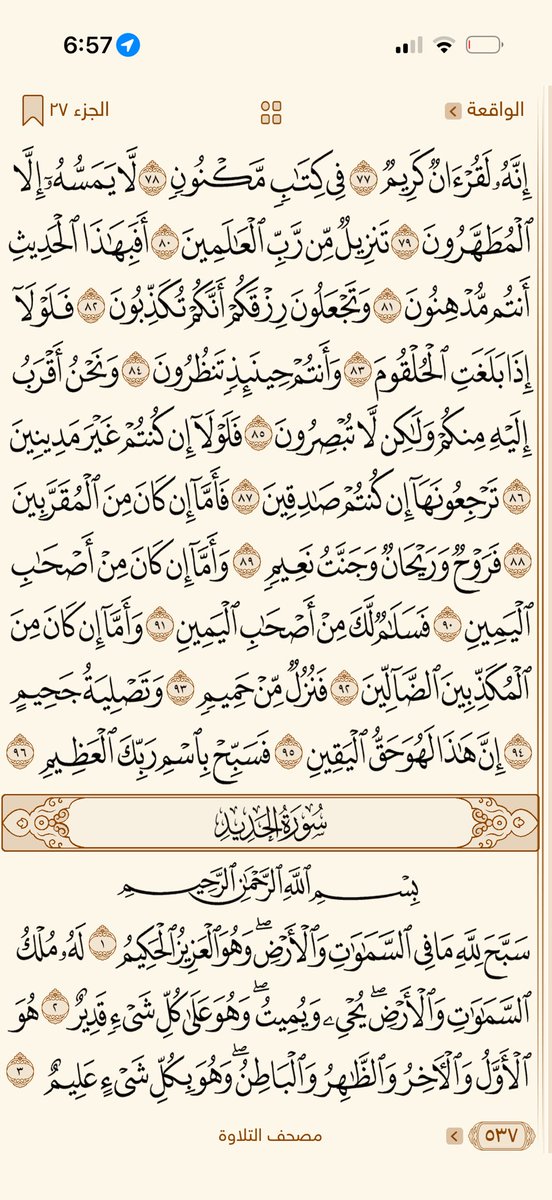 6:57
الواقعة
الجزء ٢٧
إِنَّهُۥ لَقُرْءَانٌ كَرِيمٌ ٧٧ فِى كِتَٰبٍ مَّكْنُونٍ ٧٨ لَّا يَمَسُّهُۥٓ إِلَّا
ٱلْمُطَهَّرُونَ ٧٩ تَنزِيلٌ مِّن رَّبِّ ٱلْعَٰلَمِينَ ٨٠ أَفَبِهَٰذَا ٱلْحَدِيثِ
أَنتُم مُّدْهِنُونَ ٨١ وَتَجْعَلُونَ رِزْقَكُمْ أَنَّكُمْ تُكَذِّبُونَ ٨٢ فَلَوْلَآ
إِذَا بَلَغَتِ ٱلْحُلْقُومَ ٨٣ وَأَنتُمْ حِينَئِذٍ تَنظُرُونَ ٨٤ وَنَحْنُ أَقْرَبُ
إِلَيْهِ مِنكُمْ وَلَٰكِن لَّا تُبْصِرُونَ ٨٥ فَلَوْلَآ إِن كُنتُمْ غَيْرَ مَدِينِينَ
٨٦ تَرْجِعُونَهَآ إِن كُنتُمْ صَٰدِقِينَ ٨٧ فَأَمَّآ إِن كَانَ مِنَ ٱلْمُقَرَّبِينَ
٨٨ فَرَوْحٌ وَرَيْحَانٌ وَجَنَّتُ نَعِيمٍ ٨٩ وَأَمَّآ إِن كَانَ مِنْ أَصْحَٰبِ
ٱلْيَمِينِ ٩٠ فَسَلَٰمٌ لَّكَ مِنْ أَصْحَٰبِ ٱلْيَمِينِ ٩١ وَأَمَّآ إِن كَانَ مِنَ
ٱلْمُكَذِّبِينَ ٱلضَّآلِّينَ ٩٢ فَنُزُلٌ مِّنْ حَمِيمٍ ٩٣ وَتَصْلِيَةُ جَحِيمٍ
٩٤ إِنَّ هَٰذَا لَهُوَ حَقُّ ٱلْيَقِينِ ٩٥ فَسَبِّحْ بِٱسْمِ رَبِّكَ ٱلْعَظِيمِ ٩٦
سُورَةُ الحَدِيدِ
بِسْمِ ٱللَّهِ ٱلرَّحْمَٰنِ ٱلرَّحِيمِ
سَبَّحَ لِلَّهِ مَا فِى ٱلسَّمَٰوَٰتِ وَٱلْأَرْضِ ۖ وَهُوَ ٱلْعَزِيزُ ٱلْحَكِيمُ ١ لَهُۥ مُلْكُ
ٱلسَّمَٰوَٰتِ وَٱلْأَرْضِ ۖ يُحْىِۦ وَيُمِيتُ ۖ وَهُوَ عَلَىٰ كُلِّ شَىْءٍ قَدِيرٌ ٢ هُوَ
ٱلْأَوَّلُ وَٱلْءَاخِرُ وَٱلظَّٰهِرُ وَٱلْبَاطِنُ ۖ وَهُوَ بِكُلِّ شَىْءٍ عَلِيمٌ ٣
٥٣٧
مصحف التلاوة